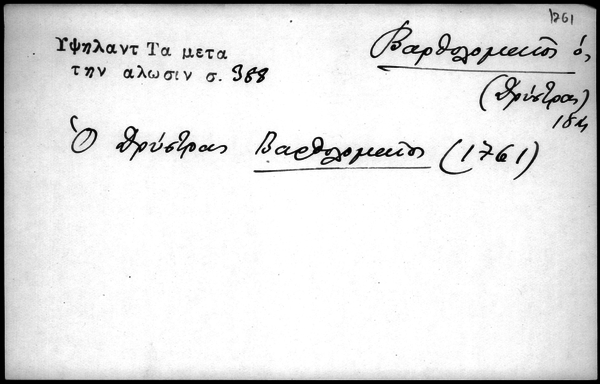 1761
Υψηλαντ Τα μετα
την αλωσιν σ. 388
Βαρθολομαῖος ὁ,
(Δρύστρας)
Ὁ Δρύστρας Βαρθολομαῖος (1761)